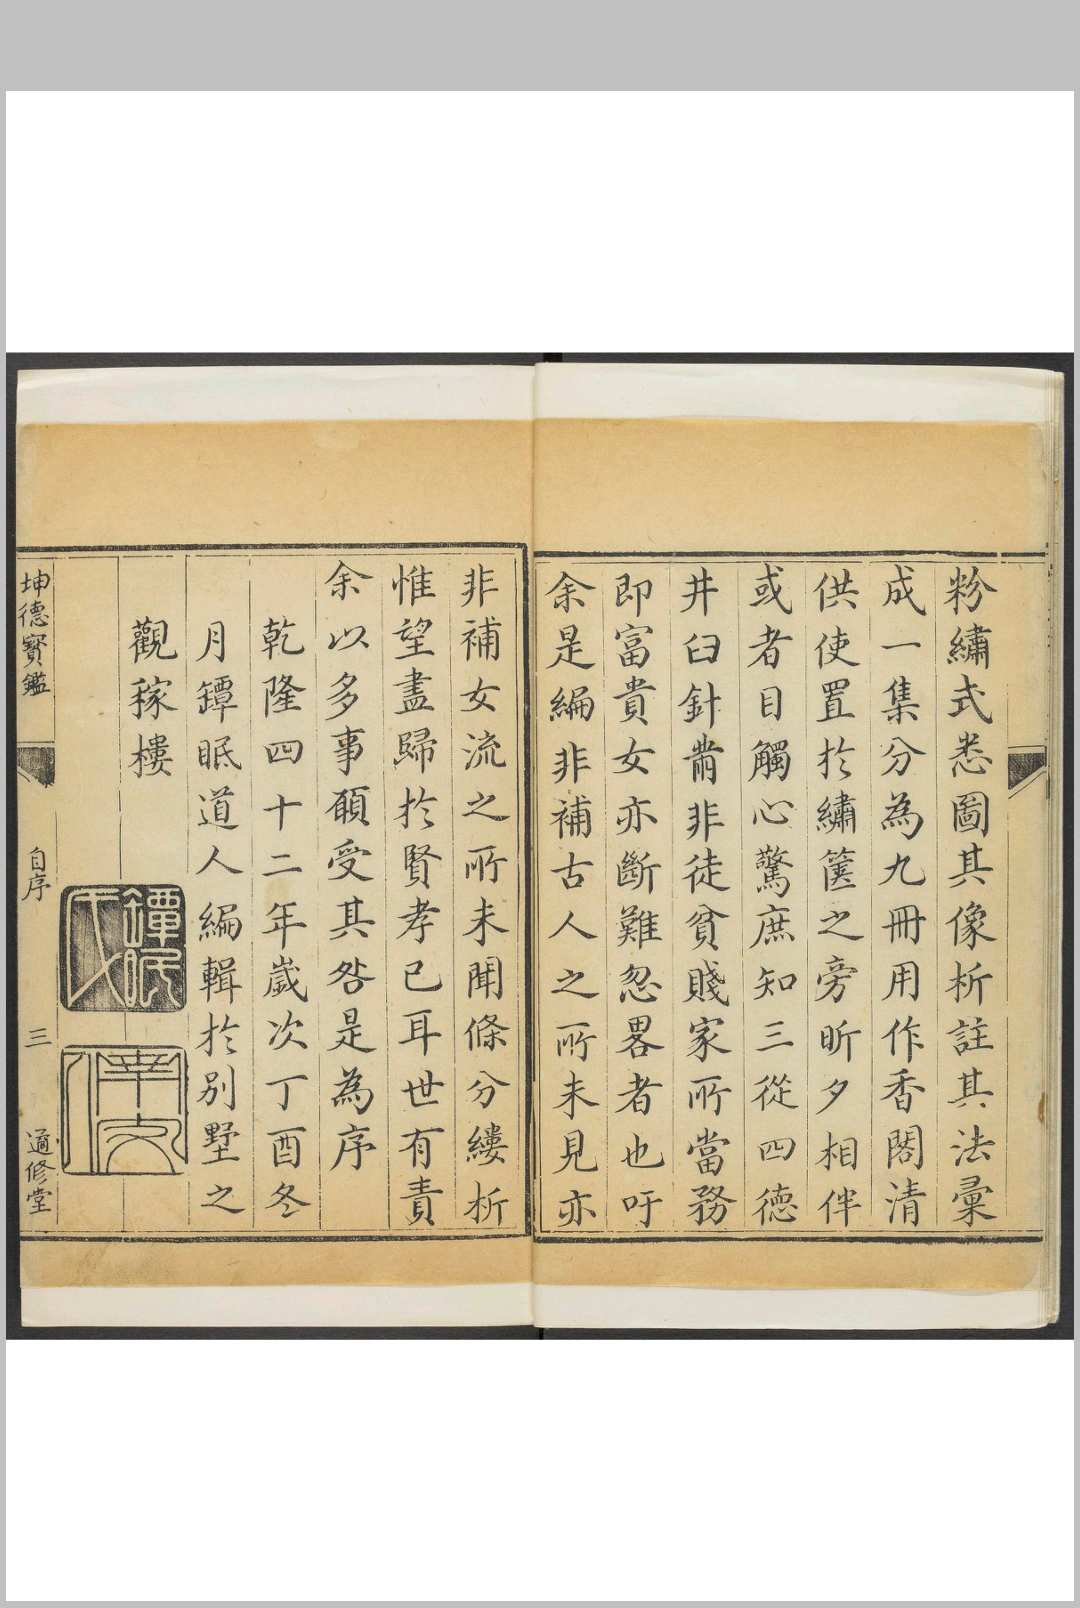 粉繡式悉圖其像析註其法彙
成一集分為九冊用作香閣清
供使置於繡篋之旁昕夕相伴
或者目觸心驚庶知三從四德
井臼針黹非徒貧賤家所當務
即富貴女亦斷難忽畧者也吁
余是編非補古人之所未見亦
非補女流之所未聞條分縷析
惟望盡歸於賢孝已耳世有責
余以多事願受其咎是為序
乾隆四十二年歲次丁酉冬
月鐔眠道人編輯於別墅之
觀稼樓
坤德寳鑑
自序
三
適修堂